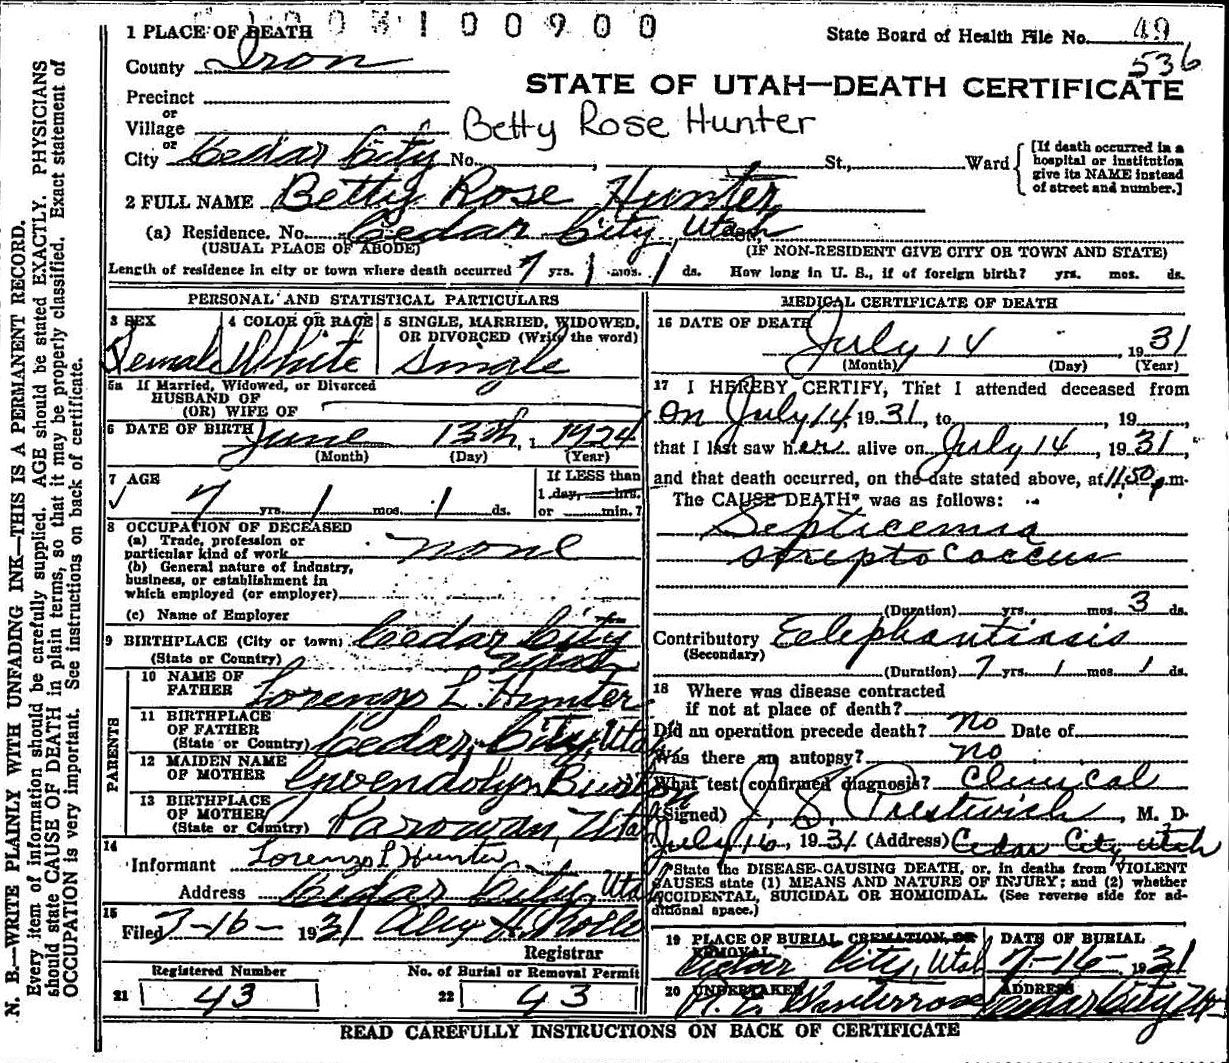 003100900
1 PLACE OF DEATH
State Board of Health File No. 49
536
County Iron
STATE OF UTAH—DEATH CERTIFICATE
Precinct
or
Village
Betty Rose Hunter
or
City Cedar City No. , St., Ward
[If death occurred in a
hospital or institution
give its NAME instead
of street and number.]
2 FULL NAME Betty Rose Hunter
(a) Residence. No. Cedar City, Utah
(USUAL PLACE OF ABODE) (IF NON-RESIDENT GIVE CITY OR TOWN AND STATE)
Length of residence in city or town where death occurred 7 yrs. 1 mos. 1 ds. How long in U. S., if of foreign birth? yrs. mos. ds.
PERSONAL AND STATISTICAL PARTICULARS
3 SEX 4 COLOR OR RACE 5 SINGLE, MARRIED, WIDOWED,
OR DIVORCED (Write the word)
Female White Single
5a If Married, Widowed, or Divorced
HUSBAND OF
(OR) WIFE OF
6 DATE OF BIRTH June 13th, 1924
(Month) (Day) (Year)
7 AGE If LESS than
7 yrs. 1 mos. 1 ds. 1 day, hrs.
or min.?
8 OCCUPATION OF DECEASED
(a) Trade, profession or
particular kind of work none
(b) General nature of industry,
business, or establishment in
which employed (or employer)
(c) Name of Employer
9 BIRTHPLACE (City or town) Cedar City
(State or Country) Utah
PARENTS
10 NAME OF
FATHER Lorenzo L. Hunter
11 BIRTHPLACE
OF FATHER
(State or Country) Cedar City, Utah
12 MAIDEN NAME
OF MOTHER Gwendolyn Burton
13 BIRTHPLACE
OF MOTHER
(State or Country) Parowan, Utah
14
Informant Lorenzo L Hunter
Address Cedar City, Utah
15
Filed 7-16- 1931 Alex H. Rollo
Registrar
Registered Number No. of Burial or Removal Permit
21 43 22 43
MEDICAL CERTIFICATE OF DEATH
16 DATE OF DEATH
July 14, 1931
(Month) (Day) (Year)
17 I HEREBY CERTIFY, That I attended deceased from
on July 14, 1931, to , 19
that I last saw her alive on July 14, 1931,
and that death occurred, on the date stated above, at 11:50 p.m.
The CAUSE DEATH* was as follows:
Septicemia
streptococcus
(Duration) yrs. mos. 3 ds.
Contributory Elephantiasis
(Secondary)
(Duration) 7 yrs. 1 mos. 1 ds.
18 Where was disease contracted
if not at place of death?
Did an operation precede death? no Date of
Was there an autopsy? no
What test confirmed diagnosis? Clinical
(Signed) J. S. Prestwich, M. D.
July 16, 1931 (Address) Cedar City Utah
*State the DISEASE CAUSING DEATH, or, in deaths from VIOLENT
CAUSES state (1) MEANS AND NATURE OF INJURY; and (2) whether
ACCIDENTAL, SUICIDAL OR HOMICIDAL. (See reverse side for ad-
ditional space.)
19 PLACE OF BURIAL CREMATION OR
REMOVAL DATE OF BURIAL
Cedar City, Utah 7-16- 1931
20 UNDERTAKER ADDRESS
Cedar City Ut
READ CAREFULLY INSTRUCTIONS ON BACK OF CERTIFICATE
N. B.—WRITE PLAINLY WITH UNFADING INK—THIS IS A PERMANENT RECORD.
Every item of information should be carefully supplied. AGE should be stated EXACTLY. PHYSICIANS
should state CAUSE OF DEATH in plain terms, so that it may be properly classified. Exact statement of
OCCUPATION is very important. See instructions on back of certificate.